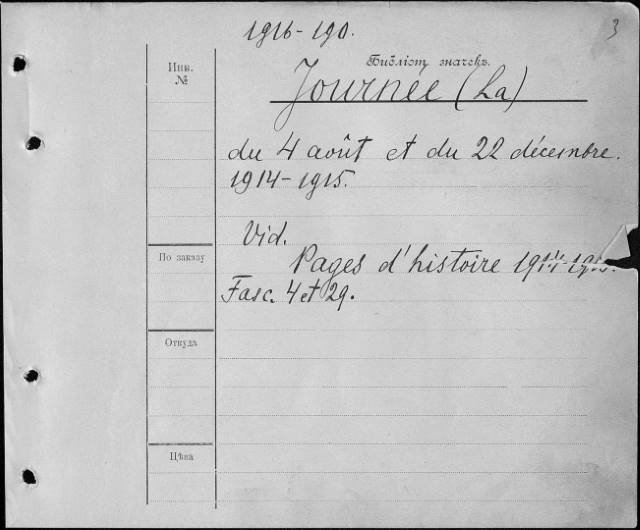 1916-190.
3
Инв.
№
Библіот. значекъ.
Journée (La)
du 4 août et du 22 décembre.
1914-1915.
Vid.
По заказу
Pages d'histoire 1914-1915.
Fasc. 4 et 29.
Откуда
Цѣна